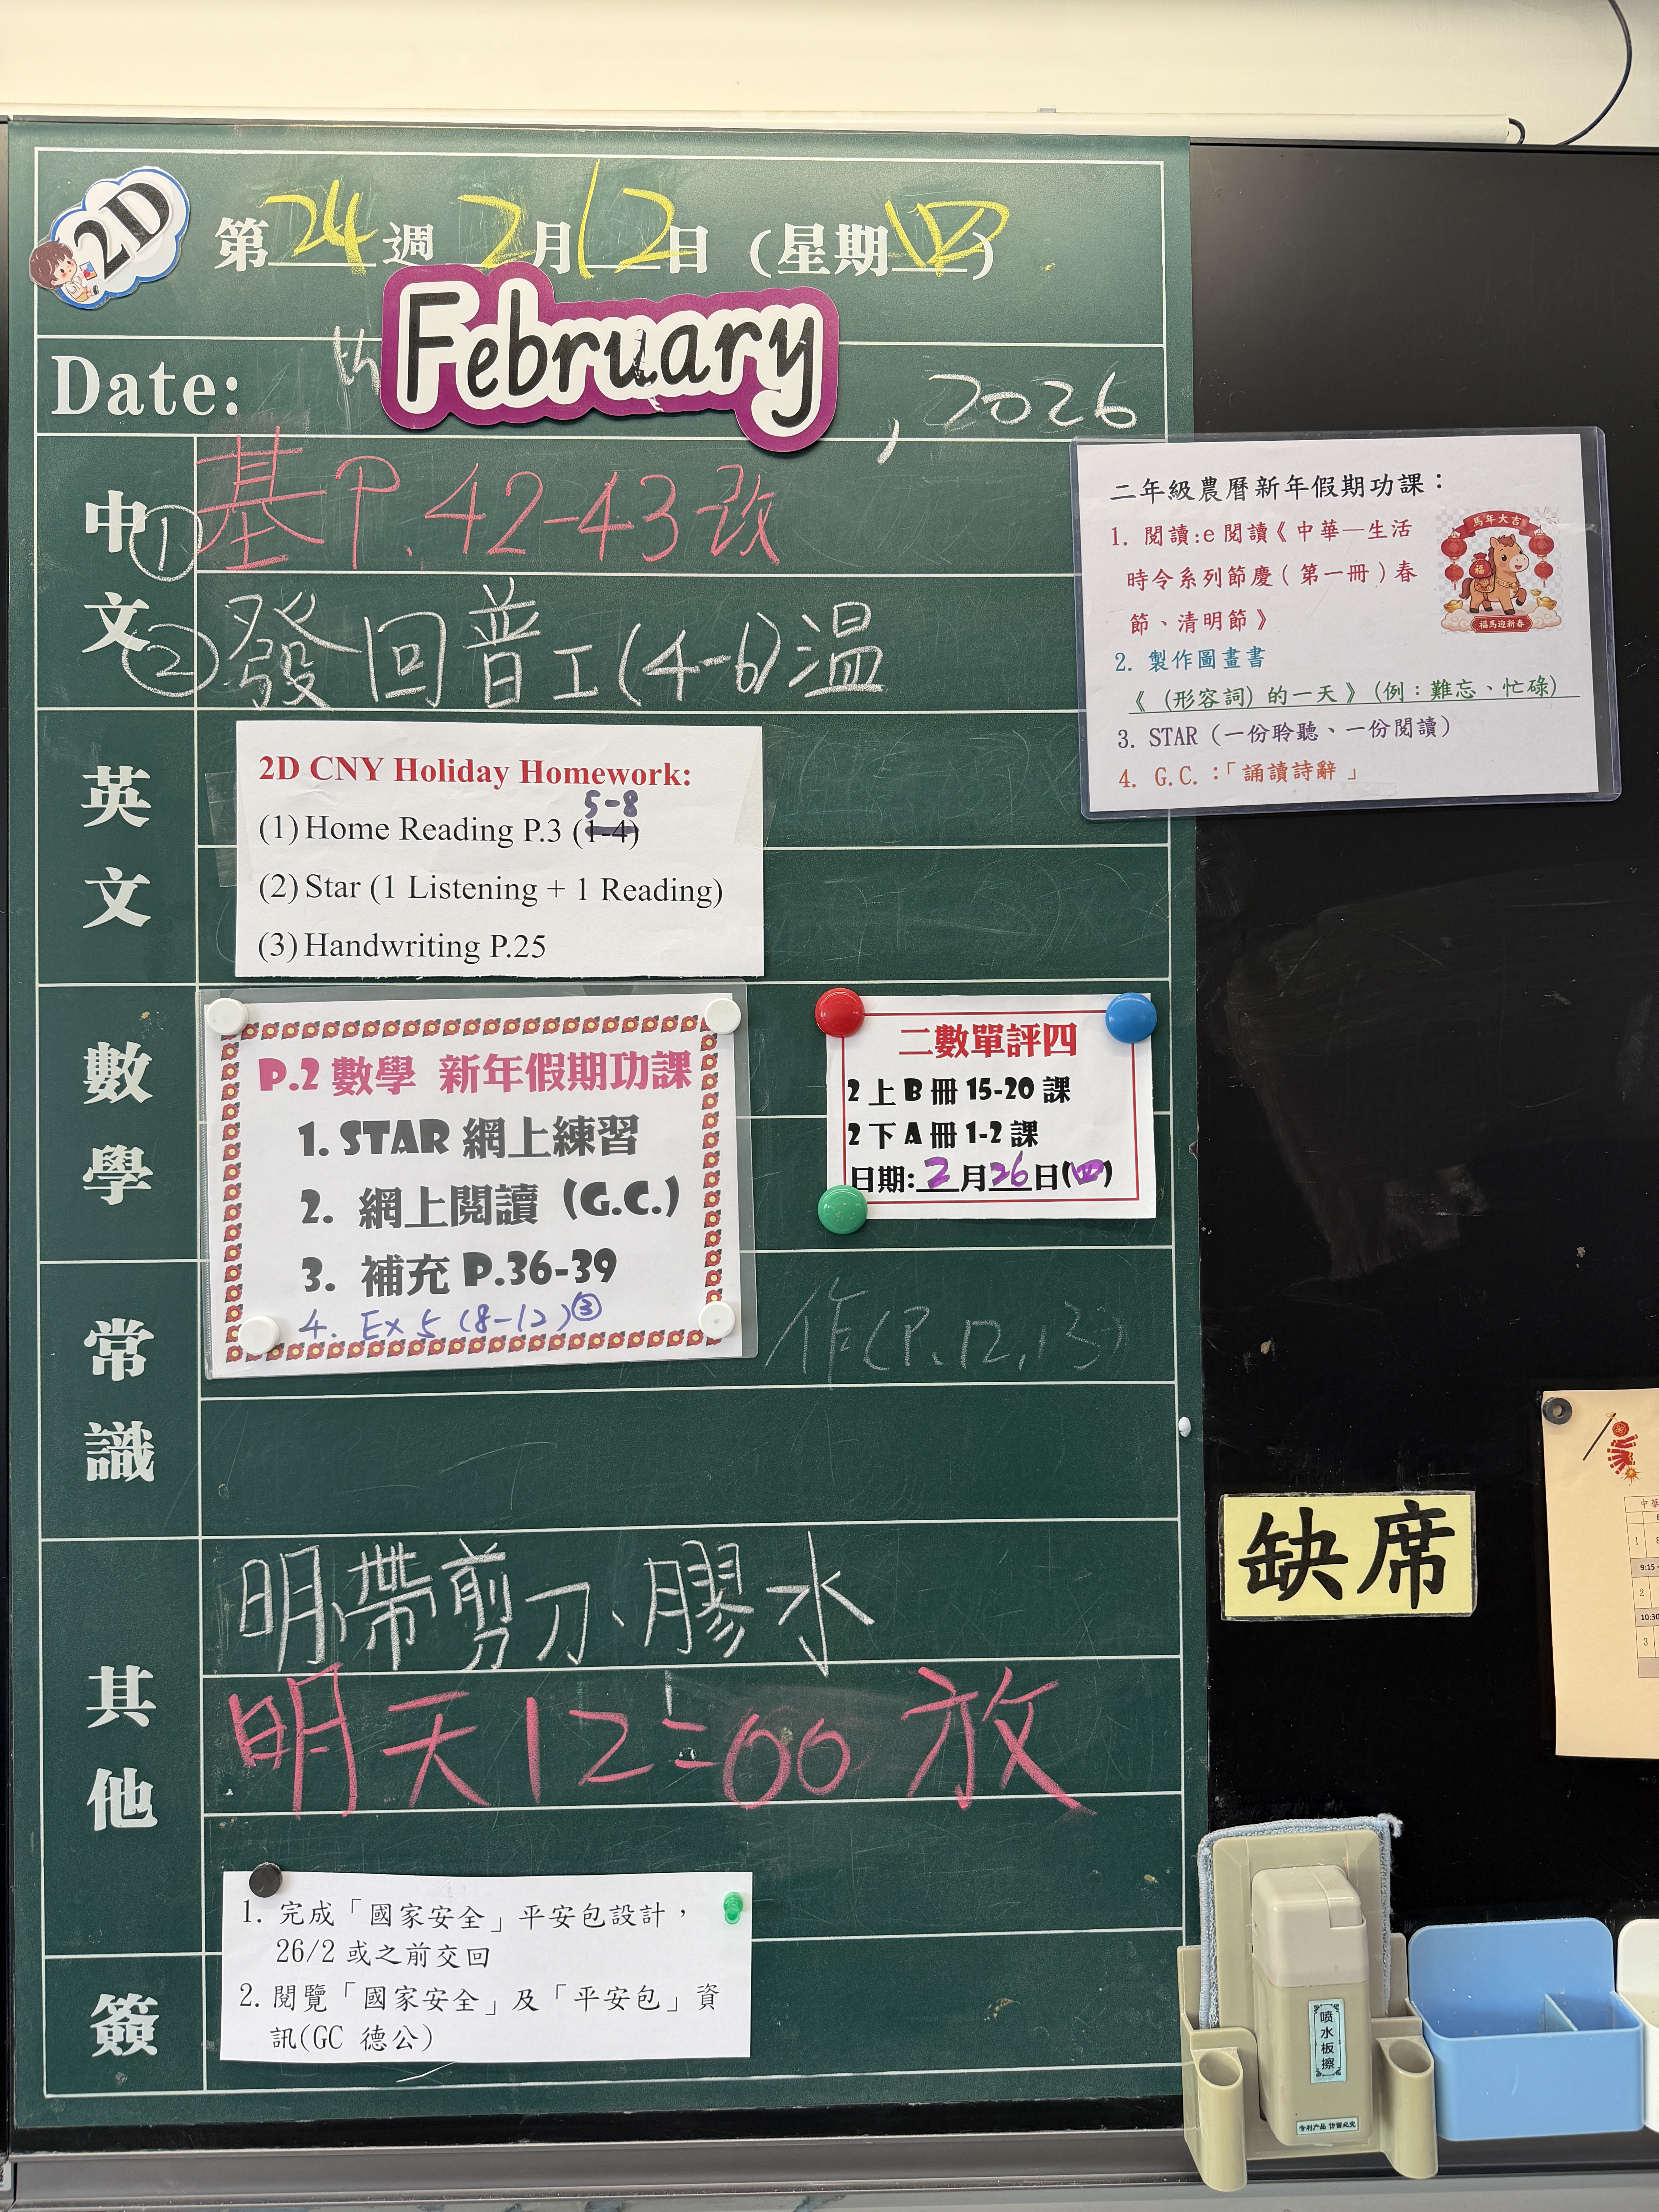 2D
第24週 2月12日 (星期四)
February
Date: th , 2026
中文
① 基P.42-43改
② 發回普工(4-6)溫
二年級農曆新年假期功課：
1. 閱讀:e閱讀《中華—生活
時令系列節慶(第一冊)春
節、清明節》
2. 製作圖畫書
《(形容詞)的一天》(例：難忘、忙碌)
3. STAR (一份聆聽、一份閱讀)
4. G.C.：「誦讀詩辭」
馬年大吉
福
福馬迎新春
英文
2D CNY Holiday Homework:
5-8
(1) Home Reading P.3 (1-4)
(2) Star (1 Listening + 1 Reading)
(3) Handwriting P.25
數學
P.2 數學 新年假期功課
1. STAR 網上練習
2. 網上閱讀 (G.C.)
3. 補充 P.36-39
4. Ex 5 (8-12) ③
二數單評四
2 上 B 冊 15-20 課
2 下 A 冊 1-2 課
日期: 2月26日(四)
常識
作(P.12,13)
其他
明帶剪刀、膠水
明天12:00放
缺席
簽
1. 完成「國家安全」平安包設計，
26/2 或之前交回
2. 閱覽「國家安全」及「平安包」資
訊(GC 德公)
喷水板擦
专利产品 仿冒必究
9:15-
2
10:30
3